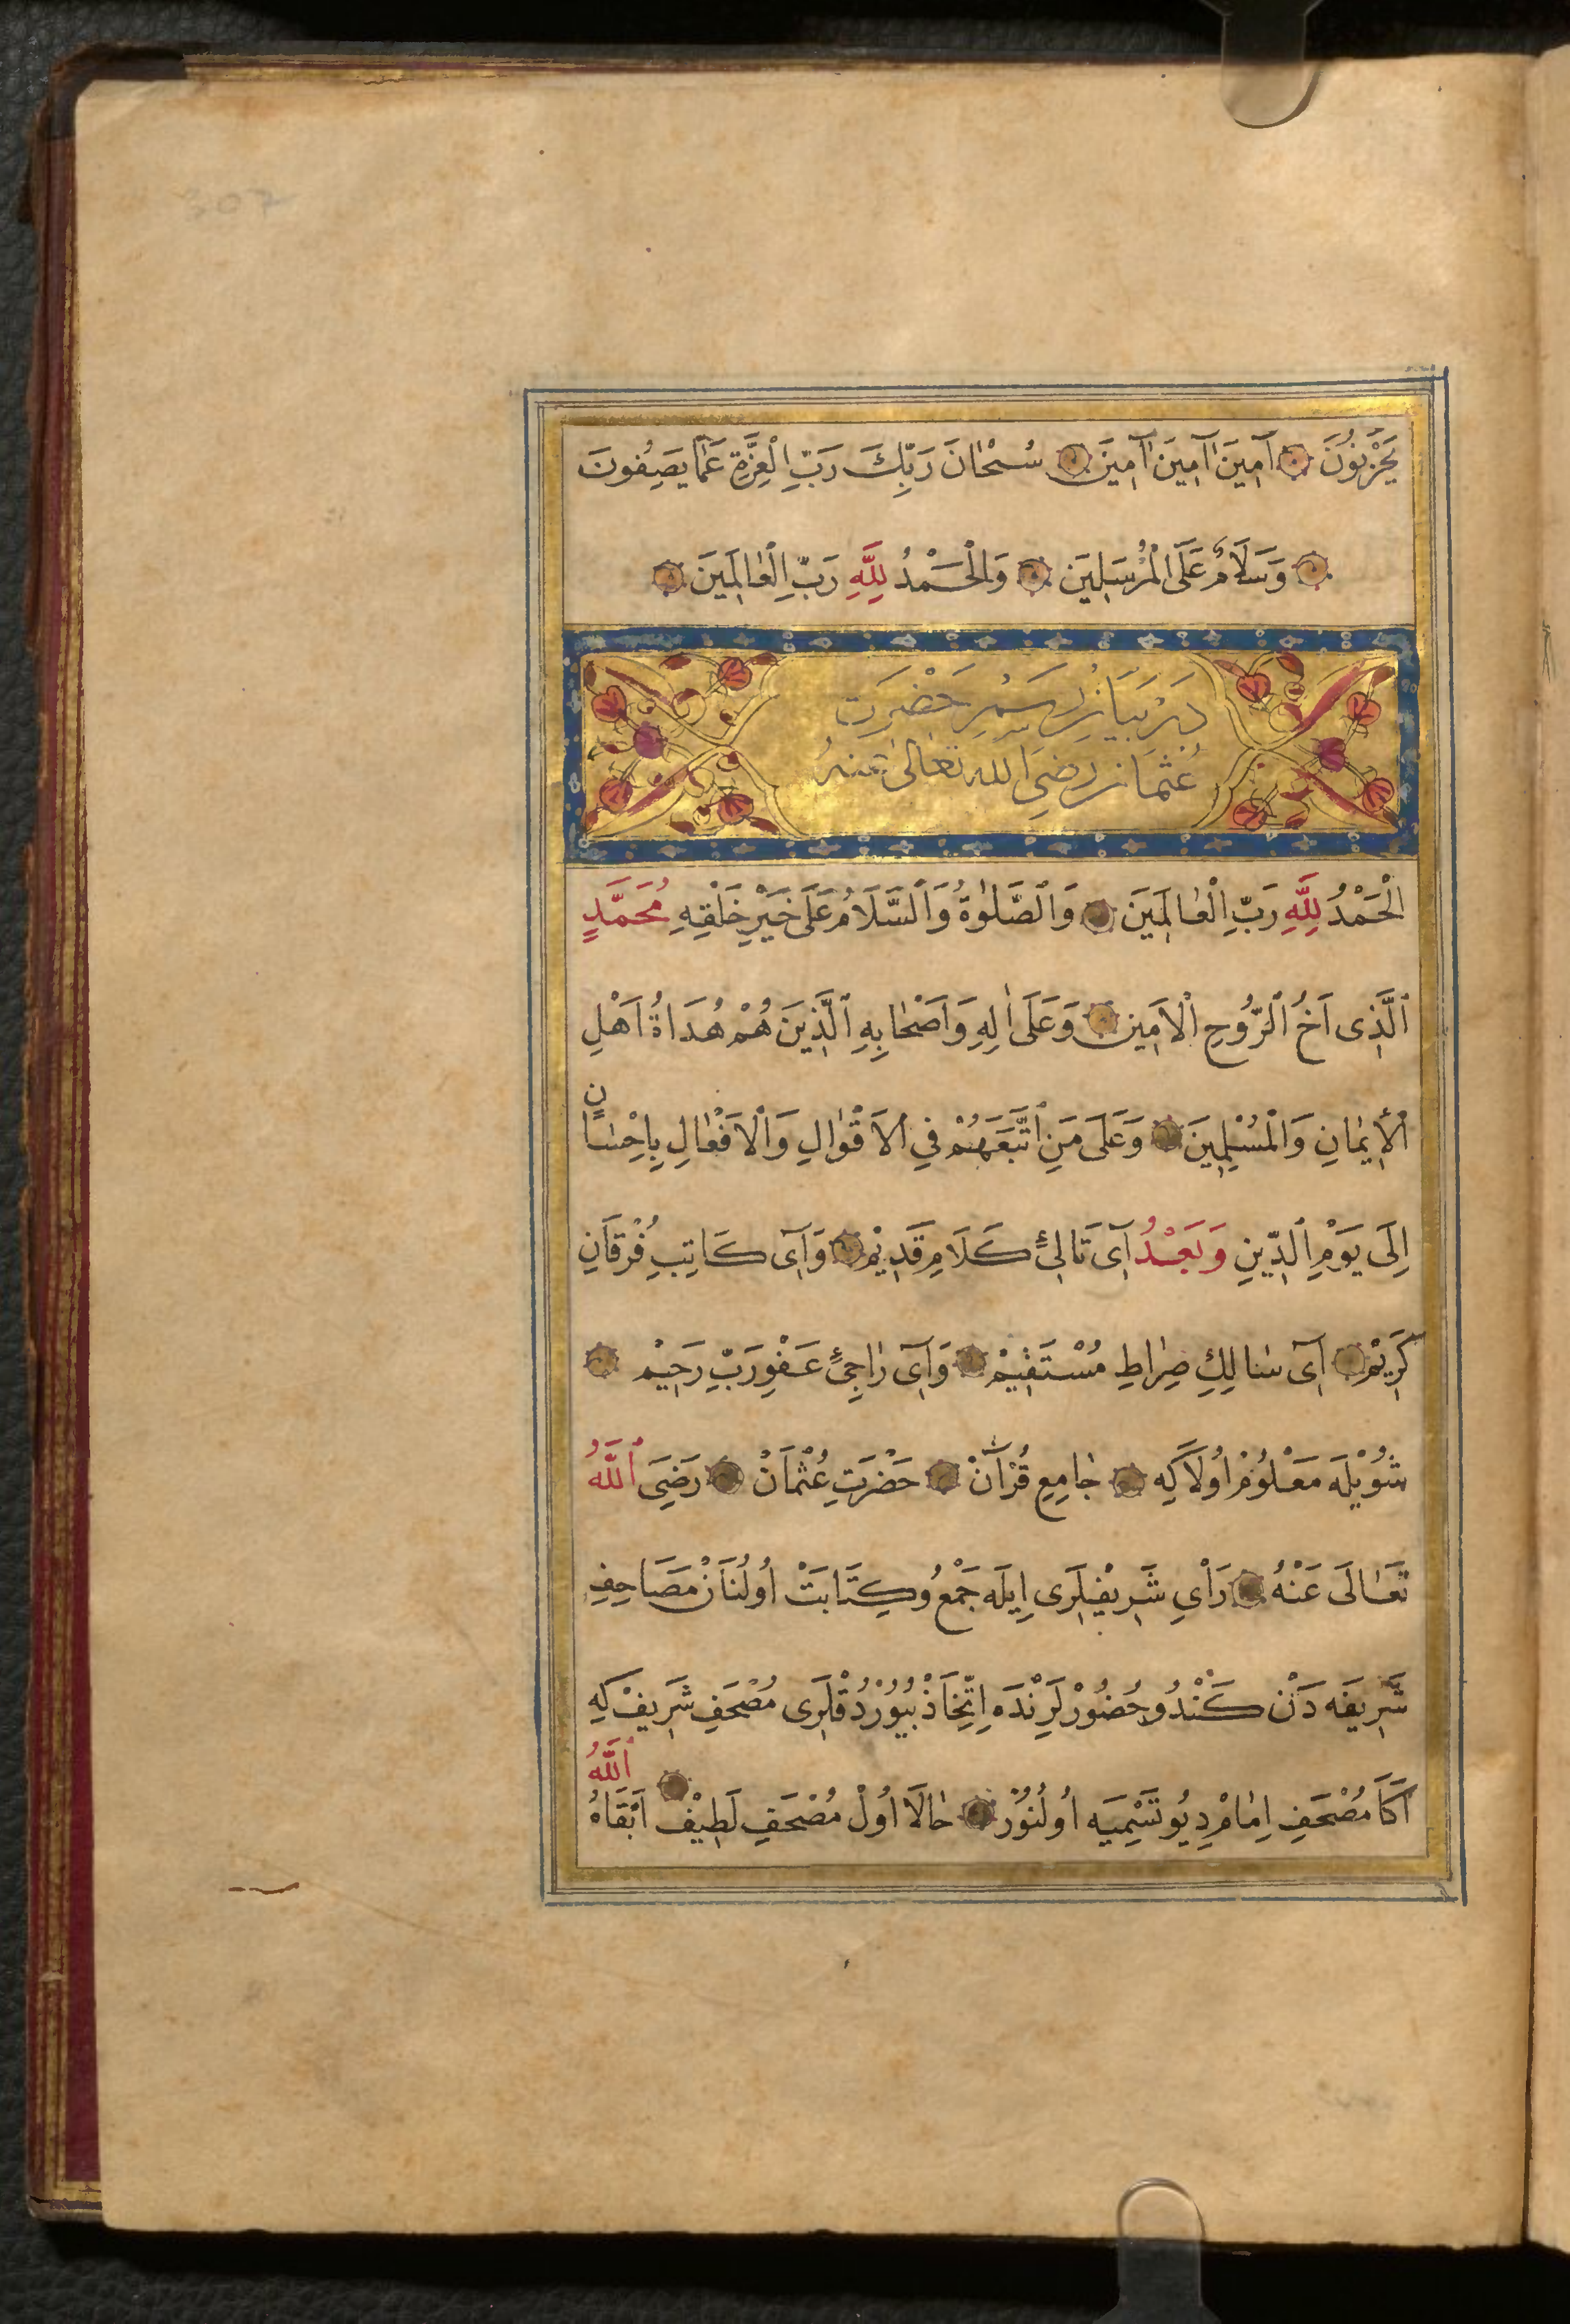 307
يَحْزَنُونَ ۝ آمِينَ اٰمِينَ اٰمِينَ ۝ سُبْحَانَ رَبِّكَ رَبِّ الْعِزَّةِ عَمَّا يَصِفُونَ
۝ وَسَلَامٌ عَلَى الْمُرْسَلِينَ ۝ وَالْحَمْدُ لِلّٰهِ رَبِّ الْعٰالَمِينَ ۝
دَرْ بَيَانِ رَسْمِ حَضْرَتِ
عُثْمَان رَضِيَ الله تَعَالٰى عَنْهُ
الْحَمْدُ لِلّٰهِ رَبِّ الْعٰالَمِينَ ۝ وَالصَّلٰوةُ وَالسَّلَامُ عَلَى خَيْرِ خَلْقِهِ مُحَمَّدٍ
اَلَّذِى اَخُ الرُّوحِ الْاَمِين ۝ وَعَلَى اٰلِهِ وَاَصْحٰابِهِ الَّذِينَ هُمْ هُدَاةُ اَهْلِ
الْاِيمٰانِ وَالْمُسْلِمِينَ ۝ وَعَلَى مَنِ اتَّبَعَهُمْ فِي الْاَقْوٰالِ وَالْاَفْعٰالِ بِاِحْسٰانٍ
اِلَى يَوْمِ الدِّينِ وَبَعْدُ آى تَالِئِ كَلَامِ قَدِيْم ۝ وَآى كَاتِبِ فُرْقَانِ
كَرِيْم ۝ آى سٰالِكِ صِرٰاطِ مُسْتَقِيْم ۝ وَآى رٰاجِئِ عَفْوِ رَبِّ رَحِيْم ۝
شُوْيْلَه مَعْلُوْمْ اُولَا كِه ۝ جٰامِعِ قُرْآنْ ۝ حَضْرَتِ عُثْمَانْ ۝ رَضِيَ اللّٰهُ
تَعٰالَى عَنْهُ ۝ رَأْىِ شَرِيفْلَرِى اِيلَه جَمْعُ وكِتَابَتْ اُولُنَانْ مَصَاحِفِ
شَرِيفَه دَنْ كَنْدُو حُضُوْرْلَرِنْدَه اِتِّخَاذْ بُيُوْرْدُقْلَرِى مُصْحَفِ شَرِيفْ كِه
آكَا مُصْحَفِ اِمٰامْ دِيُو تَسْمِيَه اُولُنُوْر ۝ حٰالَا اُولْ مُصْحَفِ لَطِيْفْ ۝ اَبْقَاهُ اللّٰهُ